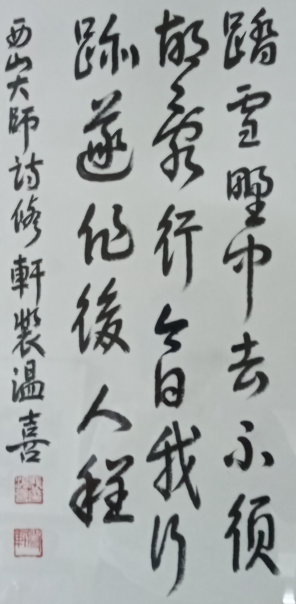 踏雪野中去不須
胡亂行今日我行
跡遂作後人程
西山大師詩修軒裵温喜